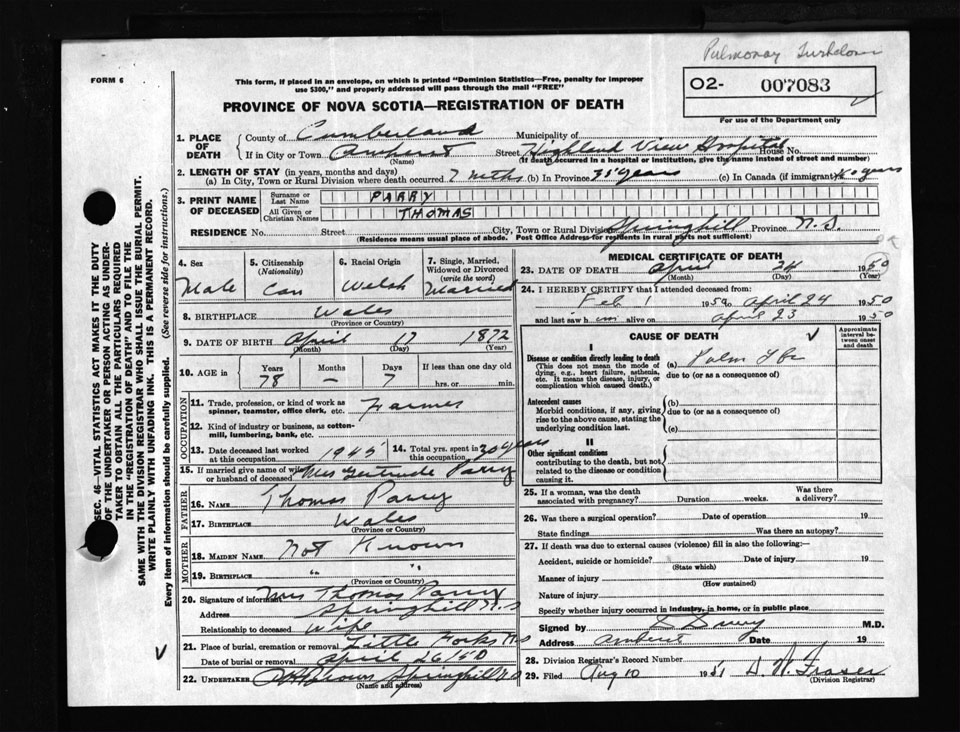 Pulmonary
FORM 6
This form, if placed in an envelope, on which is printed "Dominion Statistics—Free, penalty for improper
use $300," and properly addressed will pass through the mail "FREE"
O2- 007083
PROVINCE OF NOVA SCOTIA—REGISTRATION OF DEATH
For use of the Department only
1. PLACE OF DEATH
County of Cumberland Municipality of
If in City or Town Amherst Street Highland View Hospital House No.
(Name) (If death occurred in a hospital or institution, give the name instead of street and number)
2. LENGTH OF STAY (in years, months and days)
(a) In City, Town or Rural Division where death occurred 7 mths (b) In Province 35 years (c) In Canada (if immigrant) 40 years
3. PRINT NAME OF DECEASED
Surname or Last Name PARRY
All Given or Christian Names THOMAS
RESIDENCE No. Street City, Town or Rural Division Springhill Province N.S.
(Residence means usual place of abode. Post Office Address for residents in rural parts not sufficient)
4. Sex Male
5. Citizenship (Nationality) Can
6. Racial Origin Welsh
7. Single, Married, Widowed or Divorced (write the word) Married
8. BIRTHPLACE Wales
(Province or Country)
9. DATE OF BIRTH April 17 1872
(Month) (Day) (Year)
10. AGE in Years 78 Months — Days 7 If less than one day old hrs. or min.
OCCUPATION
11. Trade, profession, or kind of work as spinner, teamster, office clerk, etc. Farmer
12. Kind of industry or business, as cotton-mill, lumbering, bank, etc.
13. Date deceased last worked at this occupation 1945
14. Total yrs. spent in this occupation 30 years
15. If married give name of wife or husband of deceased Mrs Gertrude Parry
FATHER
16. NAME Thomas Parry
17. BIRTHPLACE Wales
(Province or Country)
MOTHER
18. MAIDEN NAME Not Known
19. BIRTHPLACE " "
(Province or Country)
20. Signature of informant Mrs Thomas Parry
Address Springhill N.S
Relationship to deceased Wife
21. Place of burial, cremation or removal Little Forks NS
Date of burial or removal April 26/50
22. UNDERTAKER Brown Springhill N.S
(Name and address)
MEDICAL CERTIFICATE OF DEATH
23. DATE OF DEATH April 24 1950
(Month) (Day) (Year)
24. I HEREBY CERTIFY that I attended deceased from:
Feb 1 1950 April 24 1950
and last saw h im alive on April 23 1950
CAUSE OF DEATH
Approximate interval between onset and death
I
Disease or condition directly leading to death
(This does not mean the mode of dying, e.g., heart failure, asthenia, etc. It means the disease, injury, or complication which caused death.)
(a) Pulm Tbc
due to (or as a consequence of)
Antecedent causes
Morbid conditions, if any, giving rise to the above cause, stating the underlying condition last.
(b)
due to (or as a consequence of)
(c)
II
Other significant conditions
contributing to the death, but not related to the disease or condition causing it.
25. If a woman, was the death associated with pregnancy? Duration weeks. Was there a delivery?
26. Was there a surgical operation? Date of operation 19
State findings Was there an autopsy?
27. If death was due to external causes (violence) fill in also the following:—
Accident, suicide or homicide? Date of injury 19
(State which)
Manner of injury
(How sustained)
Nature of injury
Specify whether injury occurred in industry, in home, or in public place
Signed by M.D.
Address Amherst Date 19
28. Division Registrar's Record Number
29. Filed Aug 10 1951 Fraser
(Division Registrar)
SEC. 46—VITAL STATISTICS ACT MAKES IT THE DUTY
OF THE UNDERTAKER OR PERSON ACTING AS UNDERTAKER
TO OBTAIN ALL THE PARTICULARS REQUIRED
IN THE "REGISTRATION OF DEATH" AND TO FILE THE
SAME WITH THE DIVISION REGISTRAR WHO SHALL ISSUE THE BURIAL PERMIT.
WRITE PLAINLY WITH UNFADING INK. THIS IS A PERMANENT RECORD.
Every item of information should be carefully supplied. (See reverse side for instructions.)